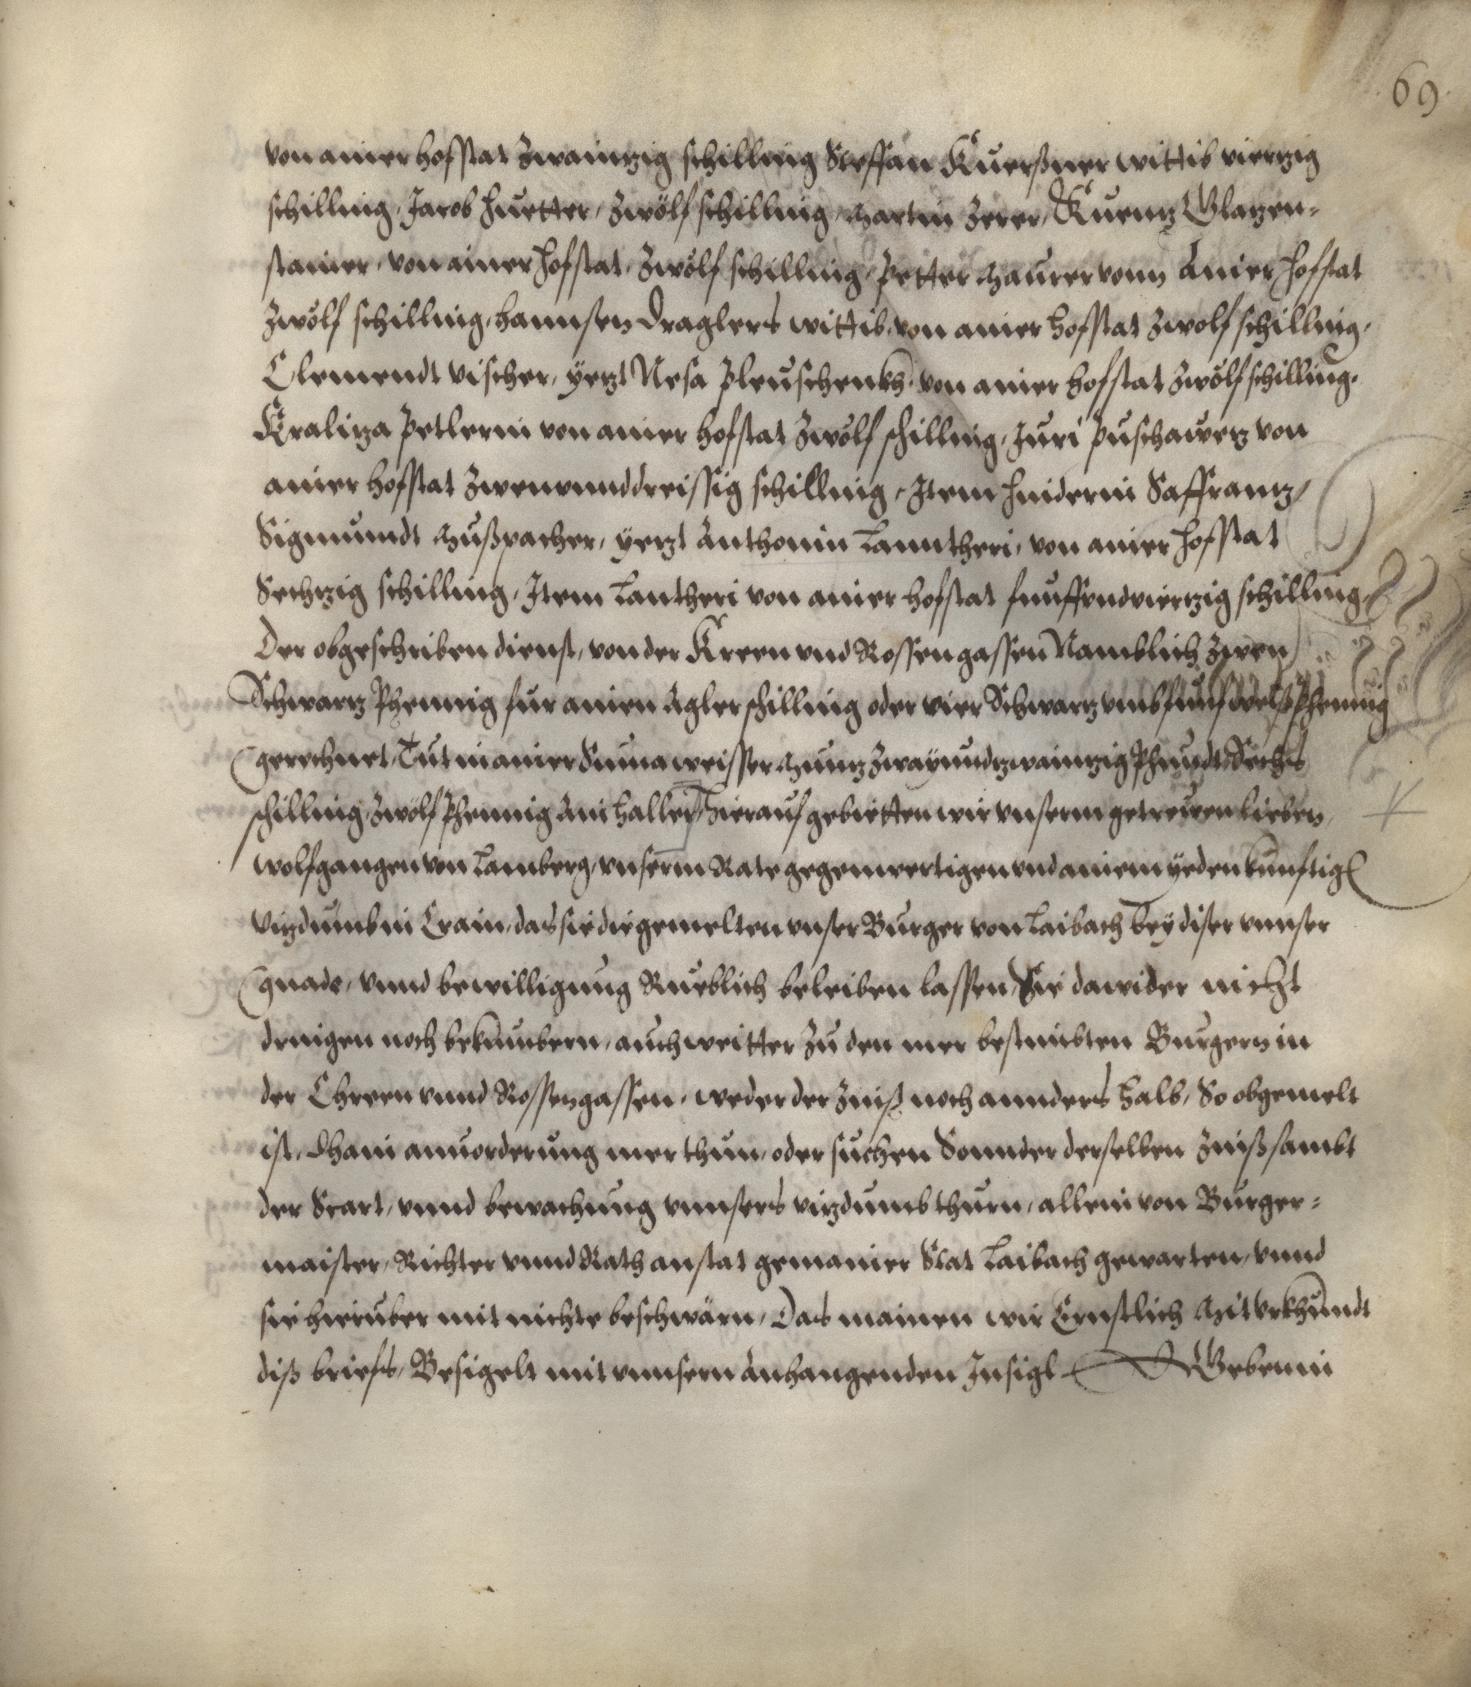 69
von ainer hofstat zwaintzig schilling Steffan Kuerßner wittib viertzig
schilling, Jacob huetter, zwölf schilling, Martin Zerer, Kuentz Glatzen=
stainer, von ainer hofstat, zwölf schilling, Petter Maurer vonn Ainer hofstat
zwölf schilling, hannsen Draglers wittib, von ainer hofstat zwolf schilling,
Clemendt vischer, yetzt Nesa Pleuschenkh, von ainer hofstat zwölf schilling,
Kraliza Petlerin von ainer hofstat zwölf schilling, Juri Puschawetz von
ainer hofstat zwenunnddreissig schilling, Item hinderin Saffrantz,
Sigmundt Mußpacher, yetzt Anthonin Lanntheri, von ainer hofstat
Sechtzig schilling, Item Lantheri von ainer hofstat funffundviertzig schilling,
Der obgeschriben dienst, von der Kreen vnd Rossengassen Namblich zwen
Schwartz Phennig fur ainen Agler schilling oder vier Schwartz vmb funf weiß Phennig
gerechnet, Tut in ainer Suma weisser Muntz zwayundzwaintzig Phundt Sechs
schilling zwölf Phennig Ain haller, Hierauf gebietten wir vnserm getrewen lieben,
wolfgangen von Lamberg, vnserm Rate gegenwertigen vnd ainem yeden kunftigen
vitzdumb in Crain, das sie die gemelten vnser Burger von Laibach bey diser vnnser
gnade, vnnd bewilligung Rueblich beleiben lassen, Sie dawider nicht
dringen noch bekumbern, auch weitter zu den mer bestimbten Burgern in
der Chreen vnnd Rossengassen, weder der Zinß noch annders halb, So obgemelt
ist, khain anvorderung mer thun, oder suchen Sonnder derselben Zinß sambt
der Scart, vnnd bewachung vnnsers vitzdumb thurn, allein von Burger=
maister, Richter vnnd Rath anstat gemainer Stat Laibach gewarten, vnnd
sie hieruber mit nichte beschwärn, Das mainen wir Ernstlich Mit vrkhundt
diß briefs, Besigelt mit vnnserm Anhangenden Insigl Geben in